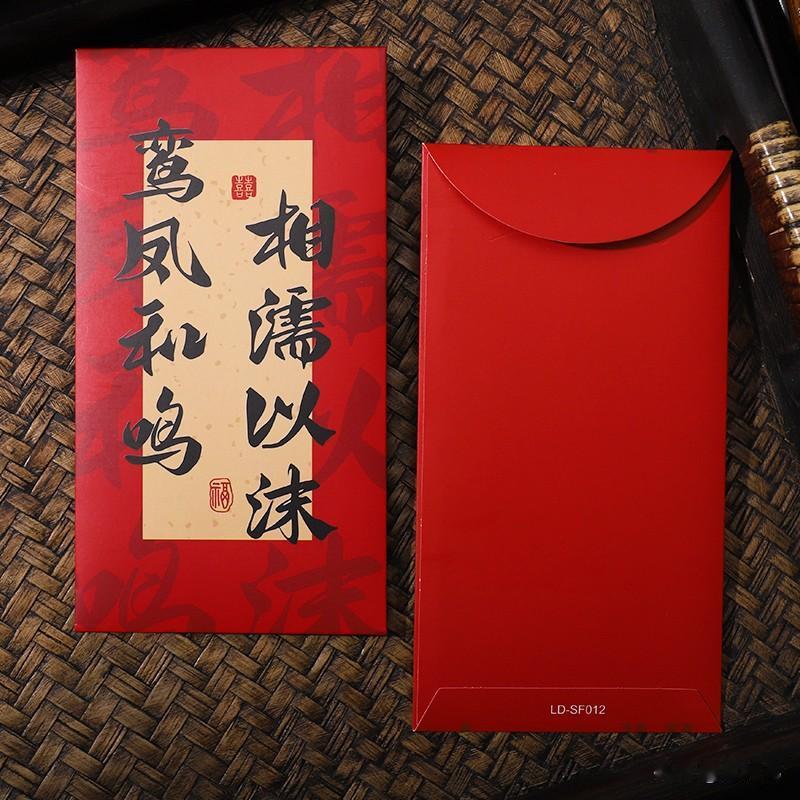 相濡以沫
鸾凤和鸣
囍
福
LD-SF012